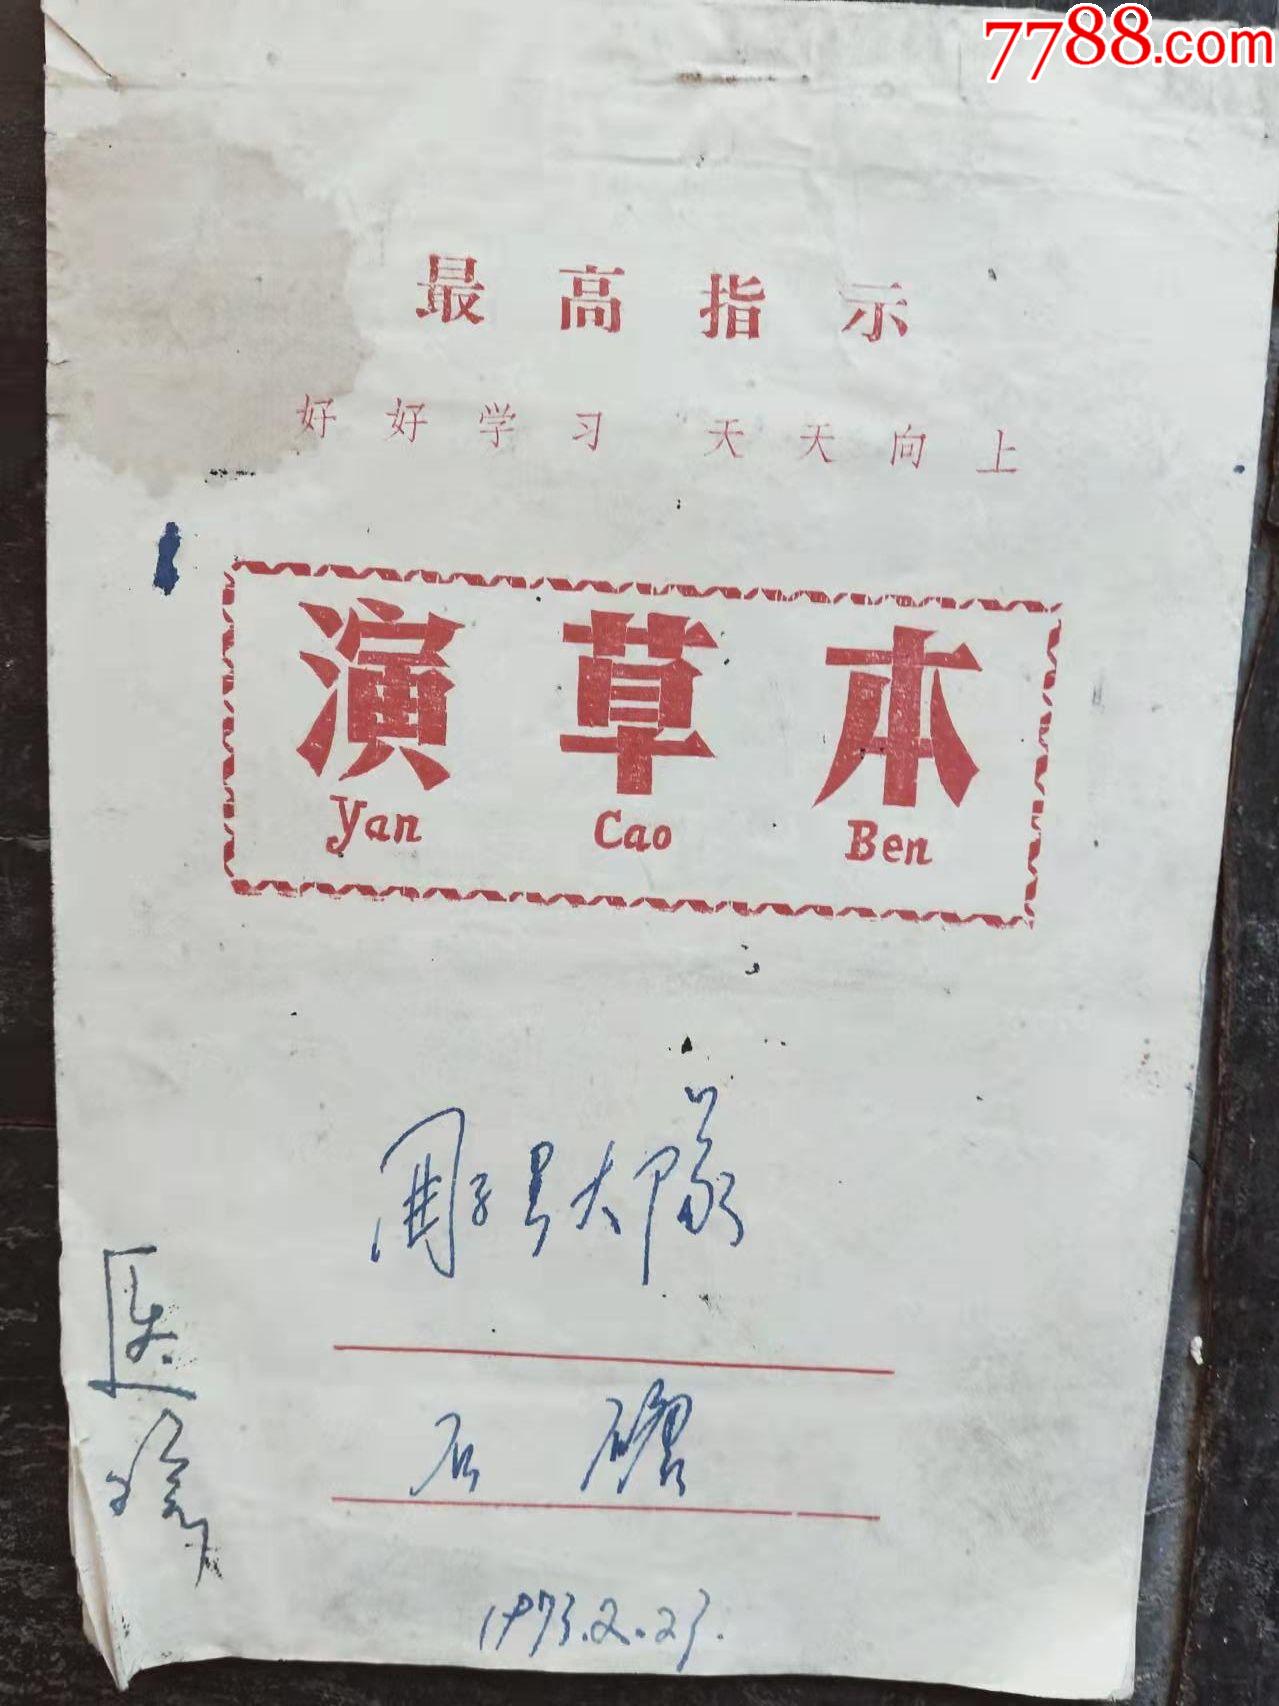 7788.com
最高指示
好好学习 天天向上
演草本
Yan Cao Ben
大队
医
1973.2.23.